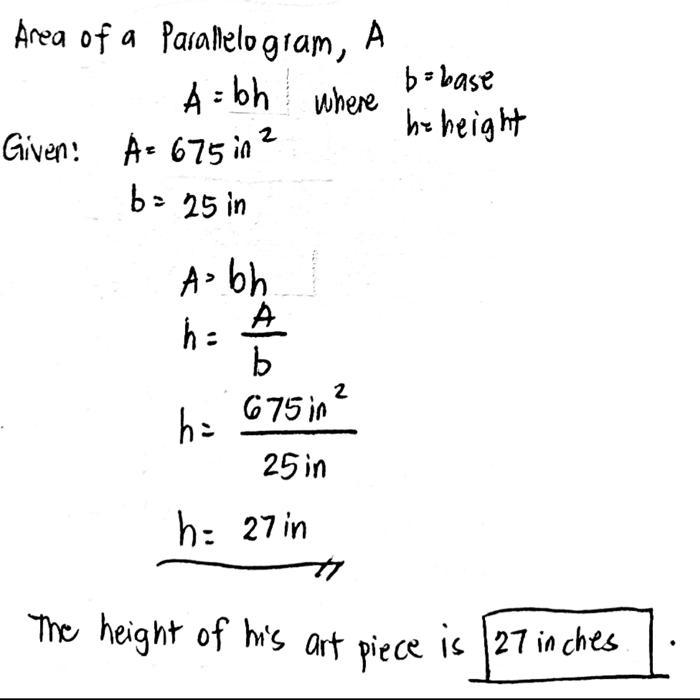 Area of a Parallelogram, A
A = bh where b = base
h = height
Given: A = 675 in²
b = 25 in
A = bh
h = A/b
h = 675 in²/25 in
h = 27 in
The height of his art piece is 27 inches.